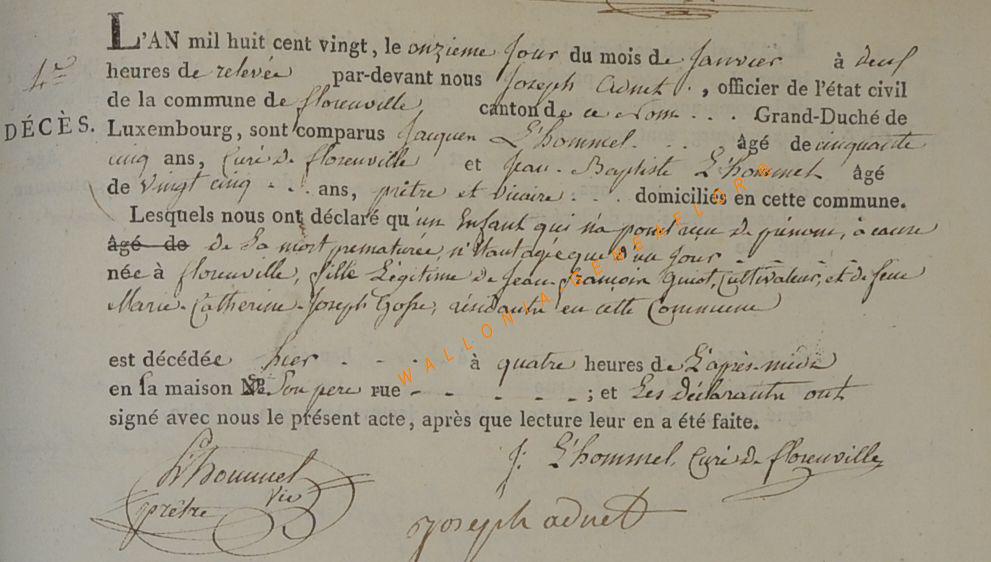 L'AN mil huit cent vingt, le onzieme Jour du mois de Janvier à deux
4e
heures de relevée par-devant nous Joseph Adnet, officier de l'état civil
de la commune de florenville canton de ce nom Grand-Duché de
DÉCÈS.
Luxembourg, sont comparus Jacques L'hommel âgé de cinquante
cinq ans, Curé de florenville et Jean-Baptiste L'hommel âgé
de vingt cinq ans, prêtre et vicaire domiciliés en cette commune.
Lesquels nous ont déclaré qu'un Enfant qui n'a point reçu de prénom, à cause
âgé de de sa mort prematurée, n'étant agée que d'un Jour
née à florenville, fille Légitime de Jean-françois Quiot, Cultivateur, et de feue
Marie-Catherine-Joseph Gosse, résidante en cette Commune
WALLONIA.GENEWEBFLOR®
est décédée hier à quatre heures de L'après-midi
en la maison de Son pere rue - - - - - ; et Les déclarants ont
signé avec nous le présent acte, après que lecture leur en a été faite.
L'hommel
prêtre vic
J: L'hommel, Curé de florenville
Joseph adnet